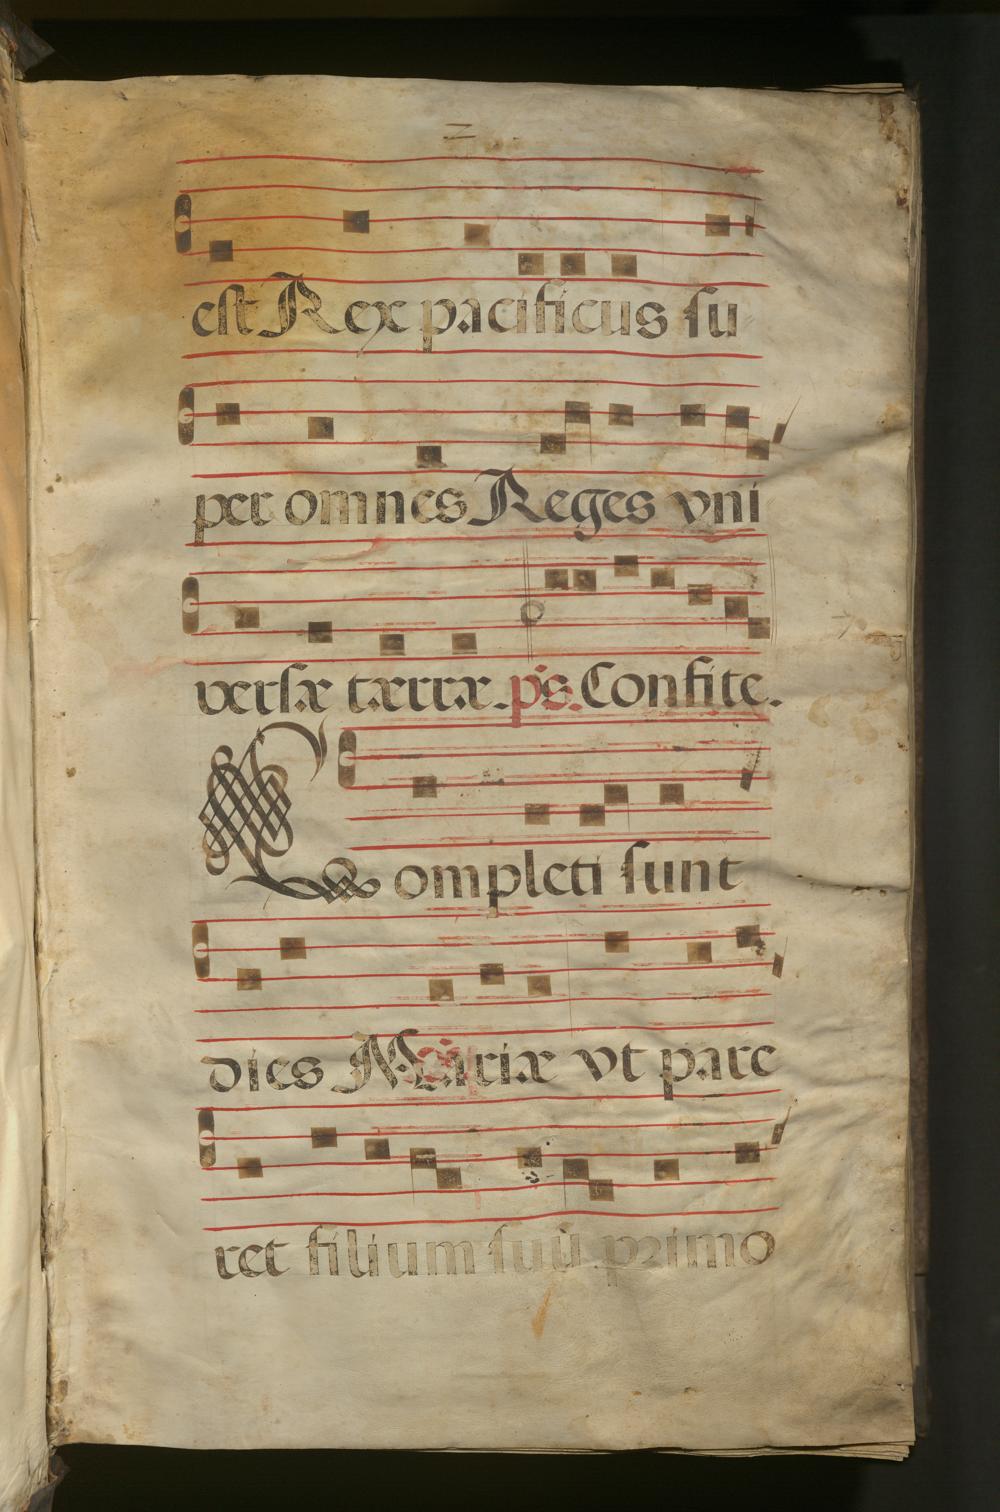 2
est Rex pacificus su
per omnes Reges vni
versæ tærræ. ps. Confite.
Completi sunt
dies Mariæ vt pare
ret filium suū primo